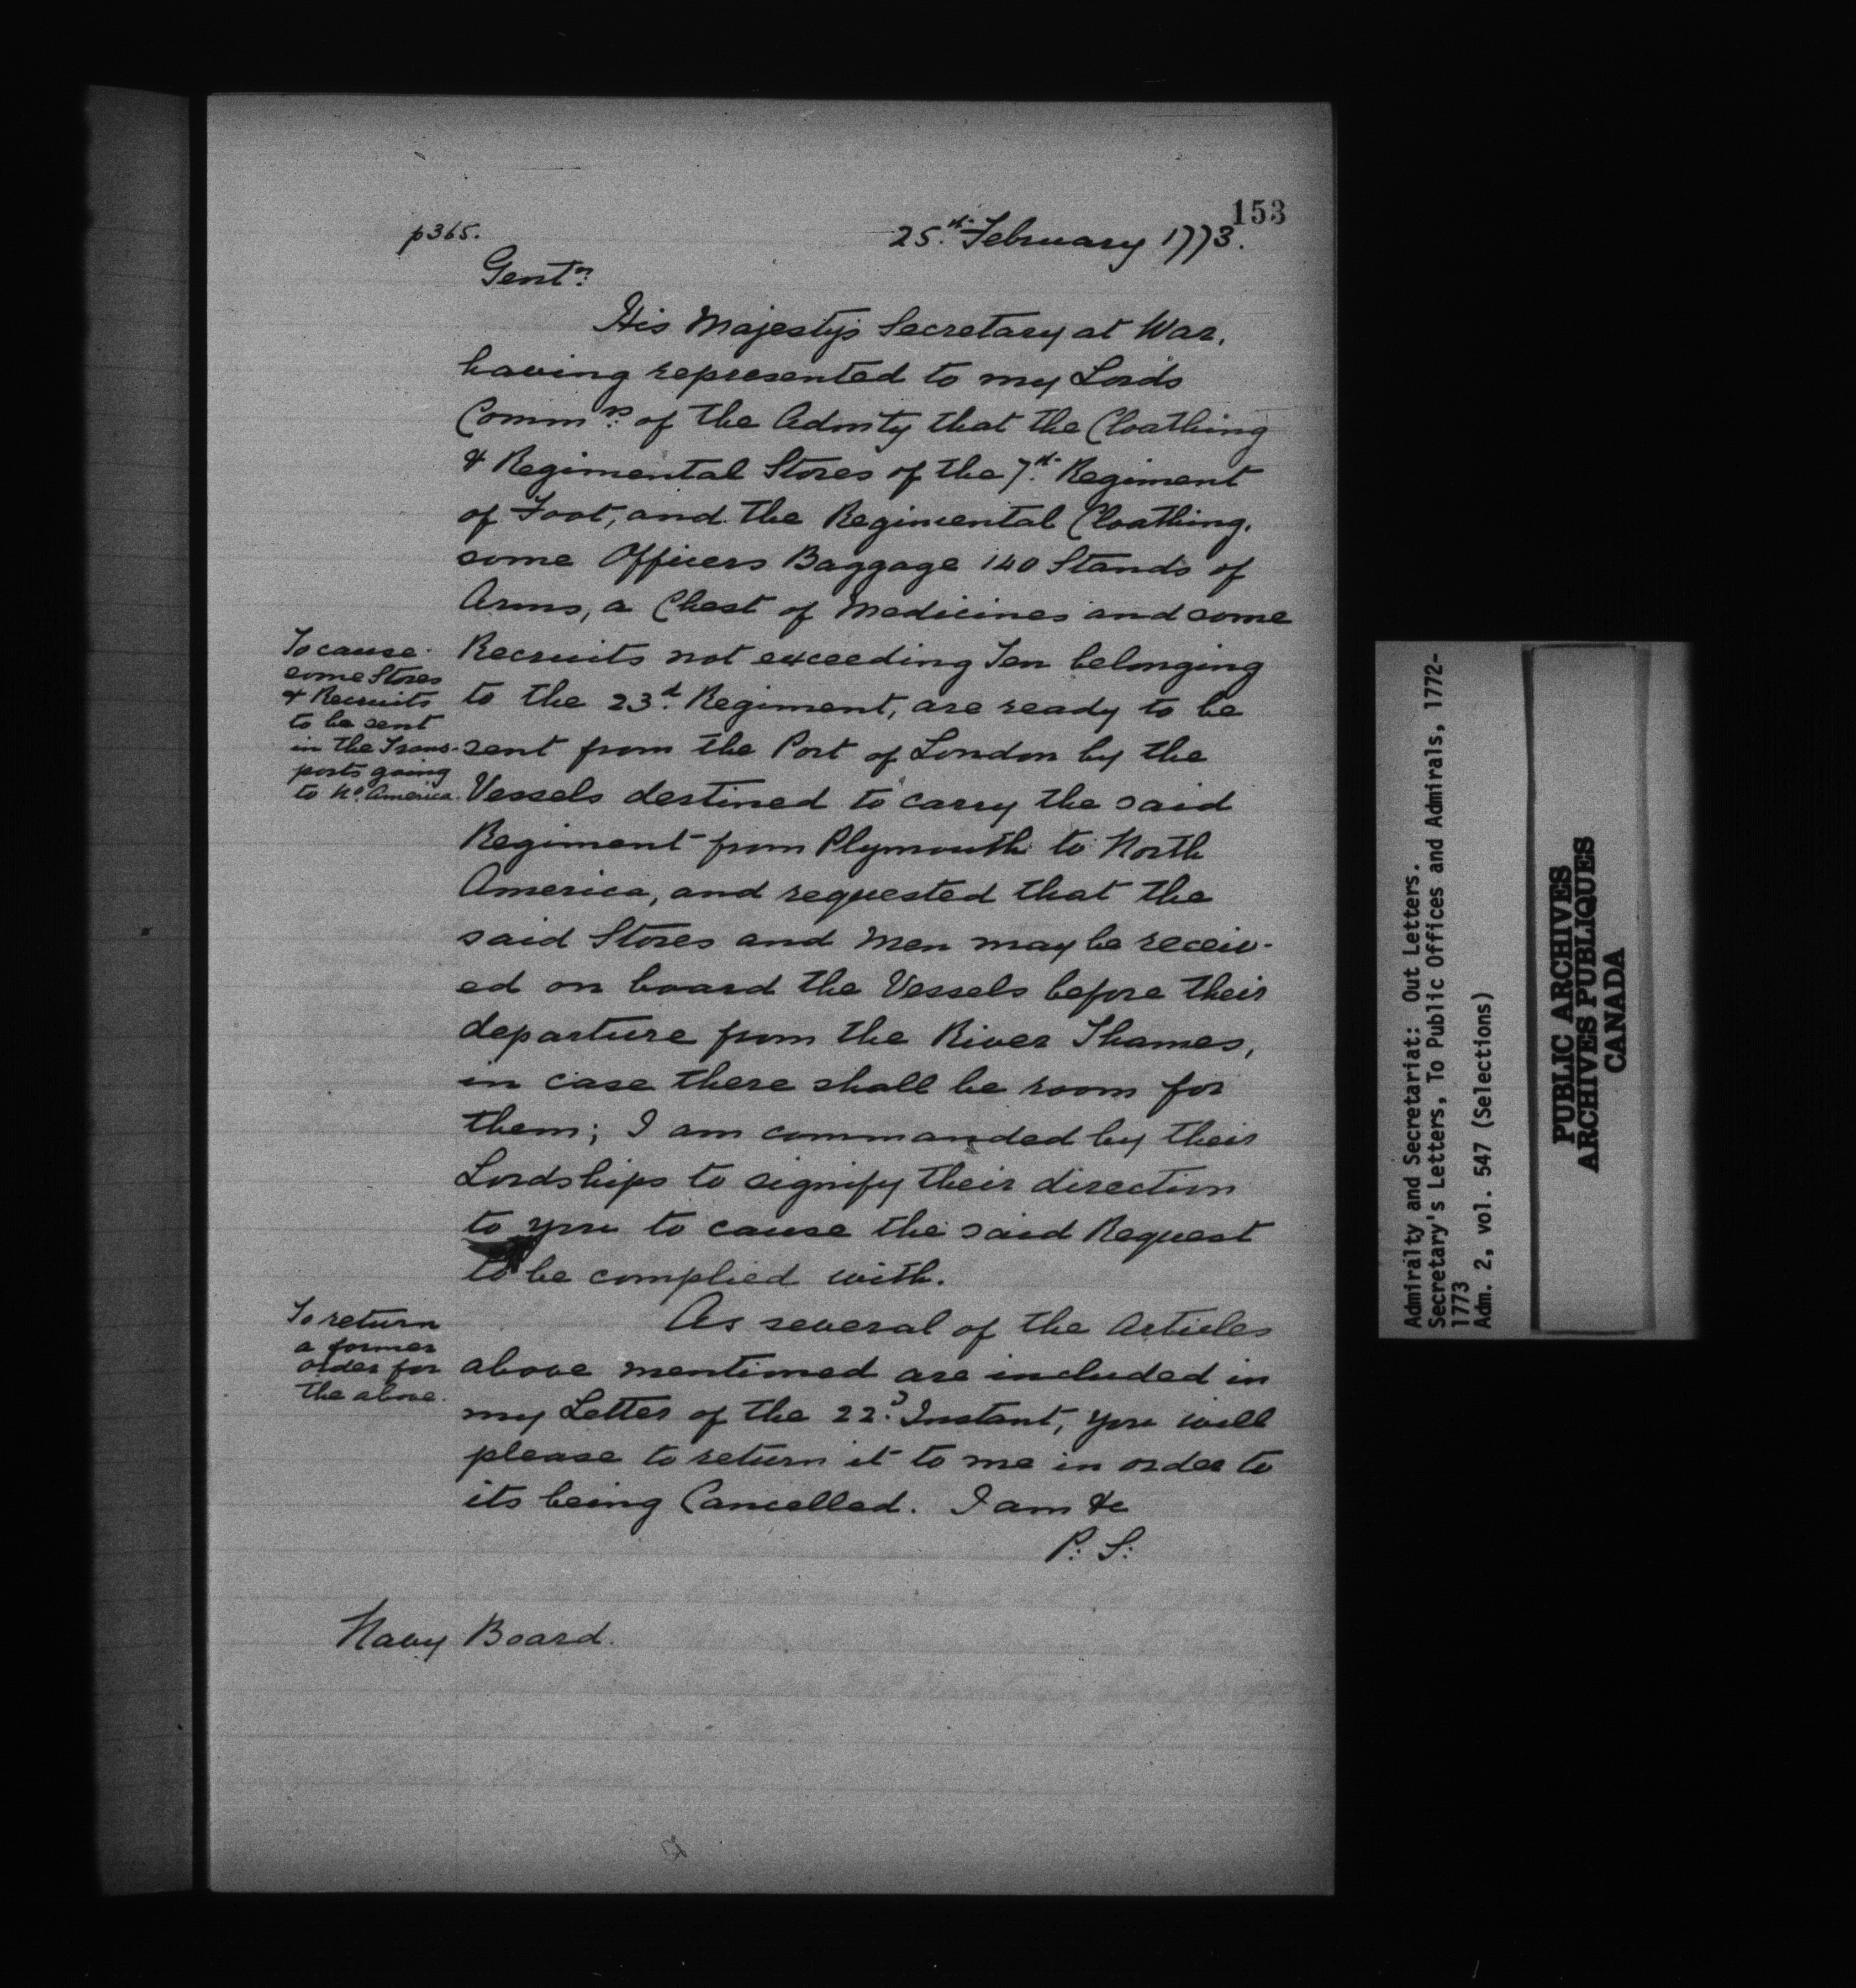 153
p365.
25.th February 1773.
Gentn:
His Majesty's Secretary at War,
having represented to my Lords
Commrs: of the Admty that the Cloathing
& Regimental Stores of the 7th. Regiment
of Foot, and the Regimental Cloathing,
some Officers Baggage 140 Stands of
Arms, a Chest of Medicines and some
Recruits not exceeding Ten belonging
to the 23d. Regiment, are ready to be
sent from the Port of London by the
Vessels destined to carry the said
Regiment from Plymouth to North
America, and requested that the
said Stores and Men may be receiv-
ed on board the Vessels before their
departure from the River Thames,
in case there shall be room for
them; I am commanded by their
Lordships to signify their direction
to you to cause the said Request
to be complied with.
As several of the Articles
above mentioned are included in
my Letter of the 22d. Instant, you will
please to return it to me in order to
its being Cancelled. I am &c
P: S:
Navy Board.
To cause
some Stores
& Recruits
to be sent
in the Trans-
ports going
to No. America.
To return
a former
order for
the above.
Admiralty and Secretariat: Out Letters.
Secretary's Letters, To Public Offices and Admirals, 1772-
1773
Adm. 2, vol. 547 (Selections)
PUBLIC ARCHIVES
ARCHIVES PUBLIQUES
CANADA